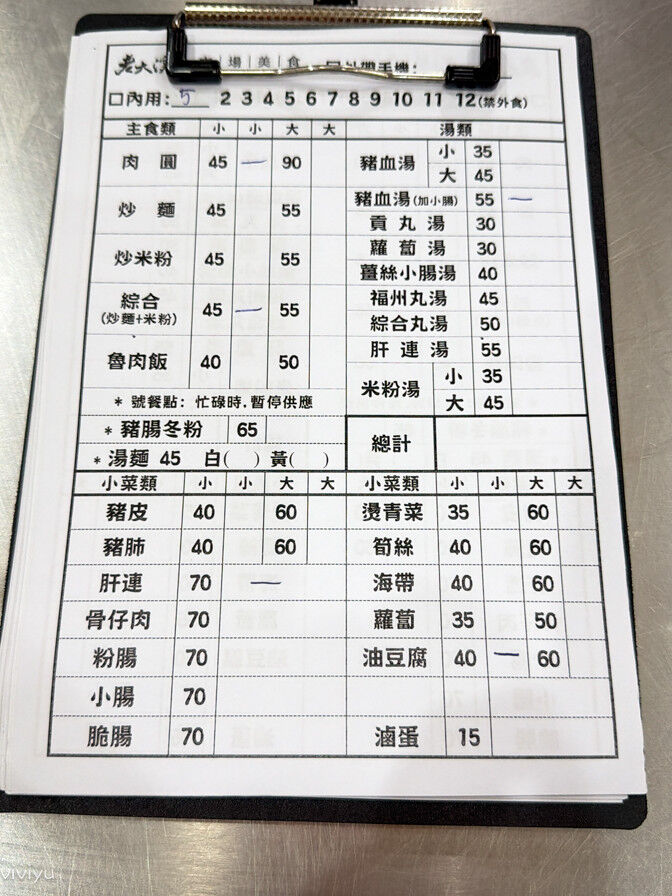 老大
場美食
手機:
口內用: 5 2 3 4 5 6 7 8 9 10 11 12 (禁外食)
主食類 小 小 大 大
肉圓 45 一 90
炒麵 45 55
炒米粉 45 55
綜合 45 一 55
(炒麵+米粉)
魯肉飯 40 50
* 號餐點: 忙碌時,暫停供應
* 豬腸冬粉 65
* 湯麵 45 白( ) 黃( )
湯類
豬血湯 小 35
大 45
豬血湯(加小腸) 55 一
貢丸湯 30
蘿蔔湯 30
薑絲小腸湯 40
福州丸湯 45
綜合丸湯 50
肝連湯 55
米粉湯 小 35
大 45
總計
小菜類 小 小 大 大
豬皮 40 60
豬肺 40 60
肝連 70 一
骨仔肉 70
粉腸 70
小腸 70
脆腸 70
小菜類 小 小 大 大
燙青菜 35 60
筍絲 40 60
海帶 40 60
蘿蔔 35 50
油豆腐 40 一 60
滷蛋 15
viviyu